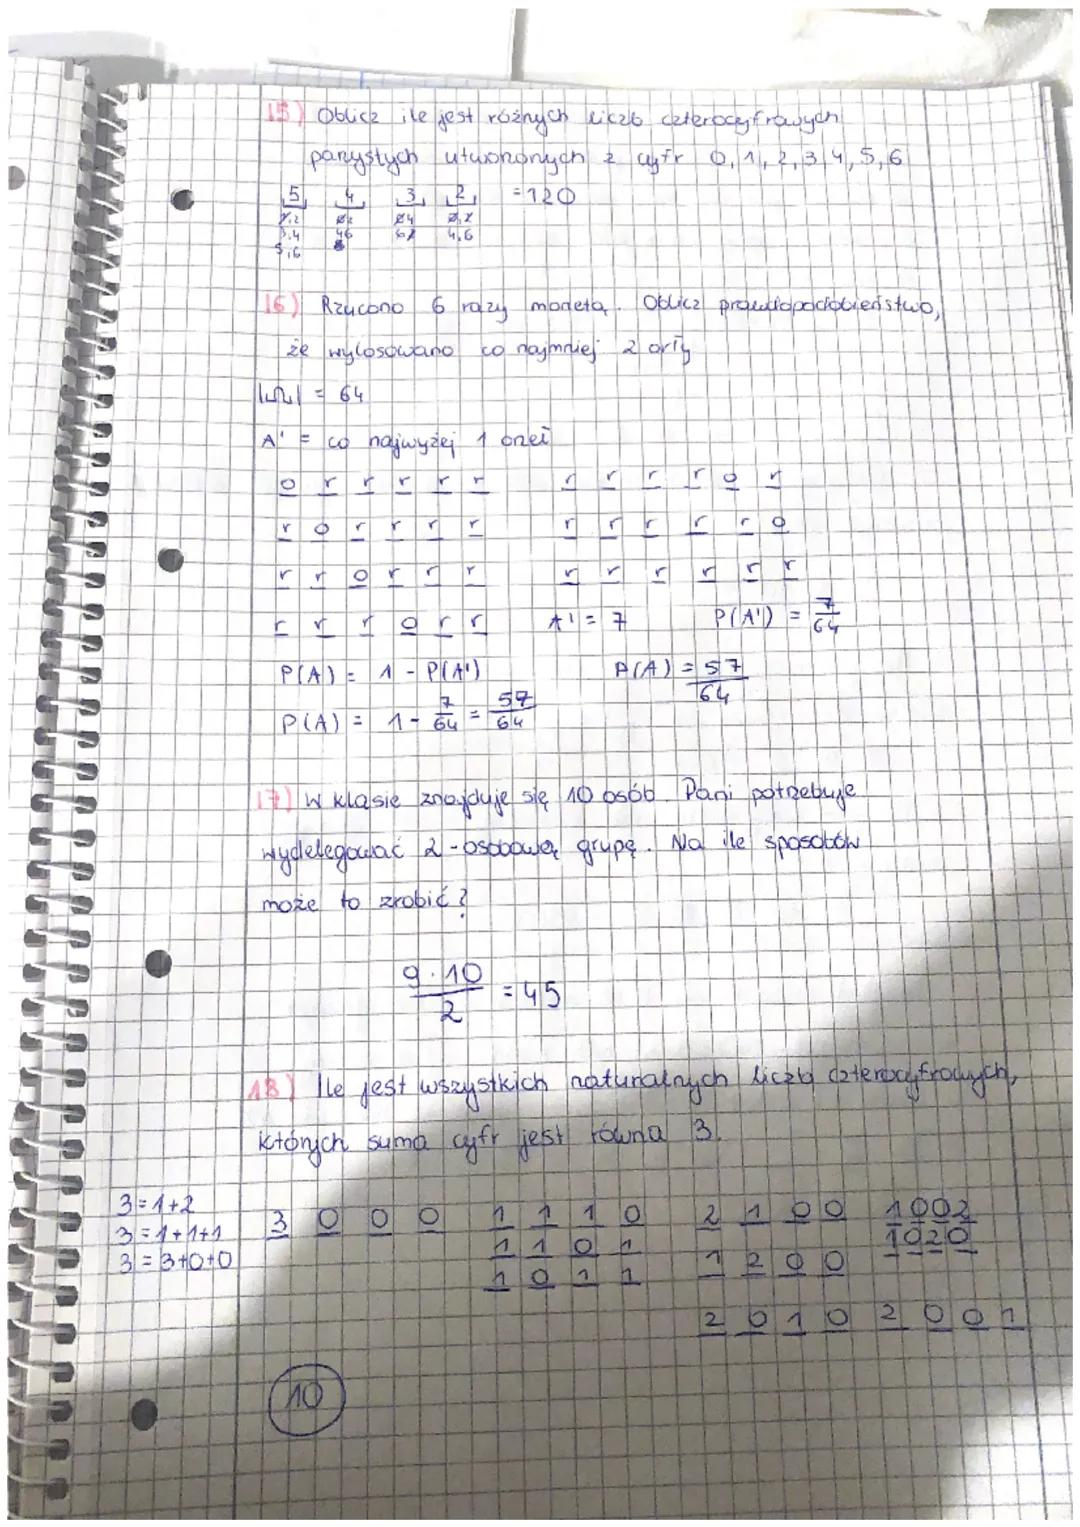 15) Oblicz ile jest różnych liczb czterocyfrowych
parzystych utworzonych z cyfr 0, 1, 2, 3, 4, 5, 6
5 4 3 2 = 120
16) Rzucono 6 razy monetą. Oblicz prawdopodobieństwo,
że wylosowano co najmniej 2 orły
|Ω| = 64
A' = co najwyżej 1 orzeł
o r r r r r r r r r o r
r o r r r r r r r r r o
r r o r r r r r r r r r
r r r o r r A' = 7 P(A') = 7/64
P(A) = 1 - P(A') P(A) = 57/64
P(A) = 1 - 7/64 = 57/64
17) W klasie znajduje się 10 osób. Pani potrzebuje
wydelegować 2-osobową grupę. Na ile sposobów
może to zrobić?
9 · 10 / 2 = 45
18) Ile jest wszystkich naturalnych liczb czterocyfrowych,
których suma cyfr jest równa 3.
3 = 1+2
3 = 1+1+1
3 = 3+0+0
3 0 0 0 1 1 1 0 2 1 0 0 1002
1 1 0 1 1020
1 0 1 1 1 2 0 0
2 0 1 0 2 0 0 1
10